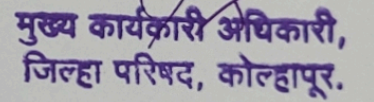 मुख्य कार्यकारी अधिकारी,
जिल्हा परिषद, कोल्हापूर.